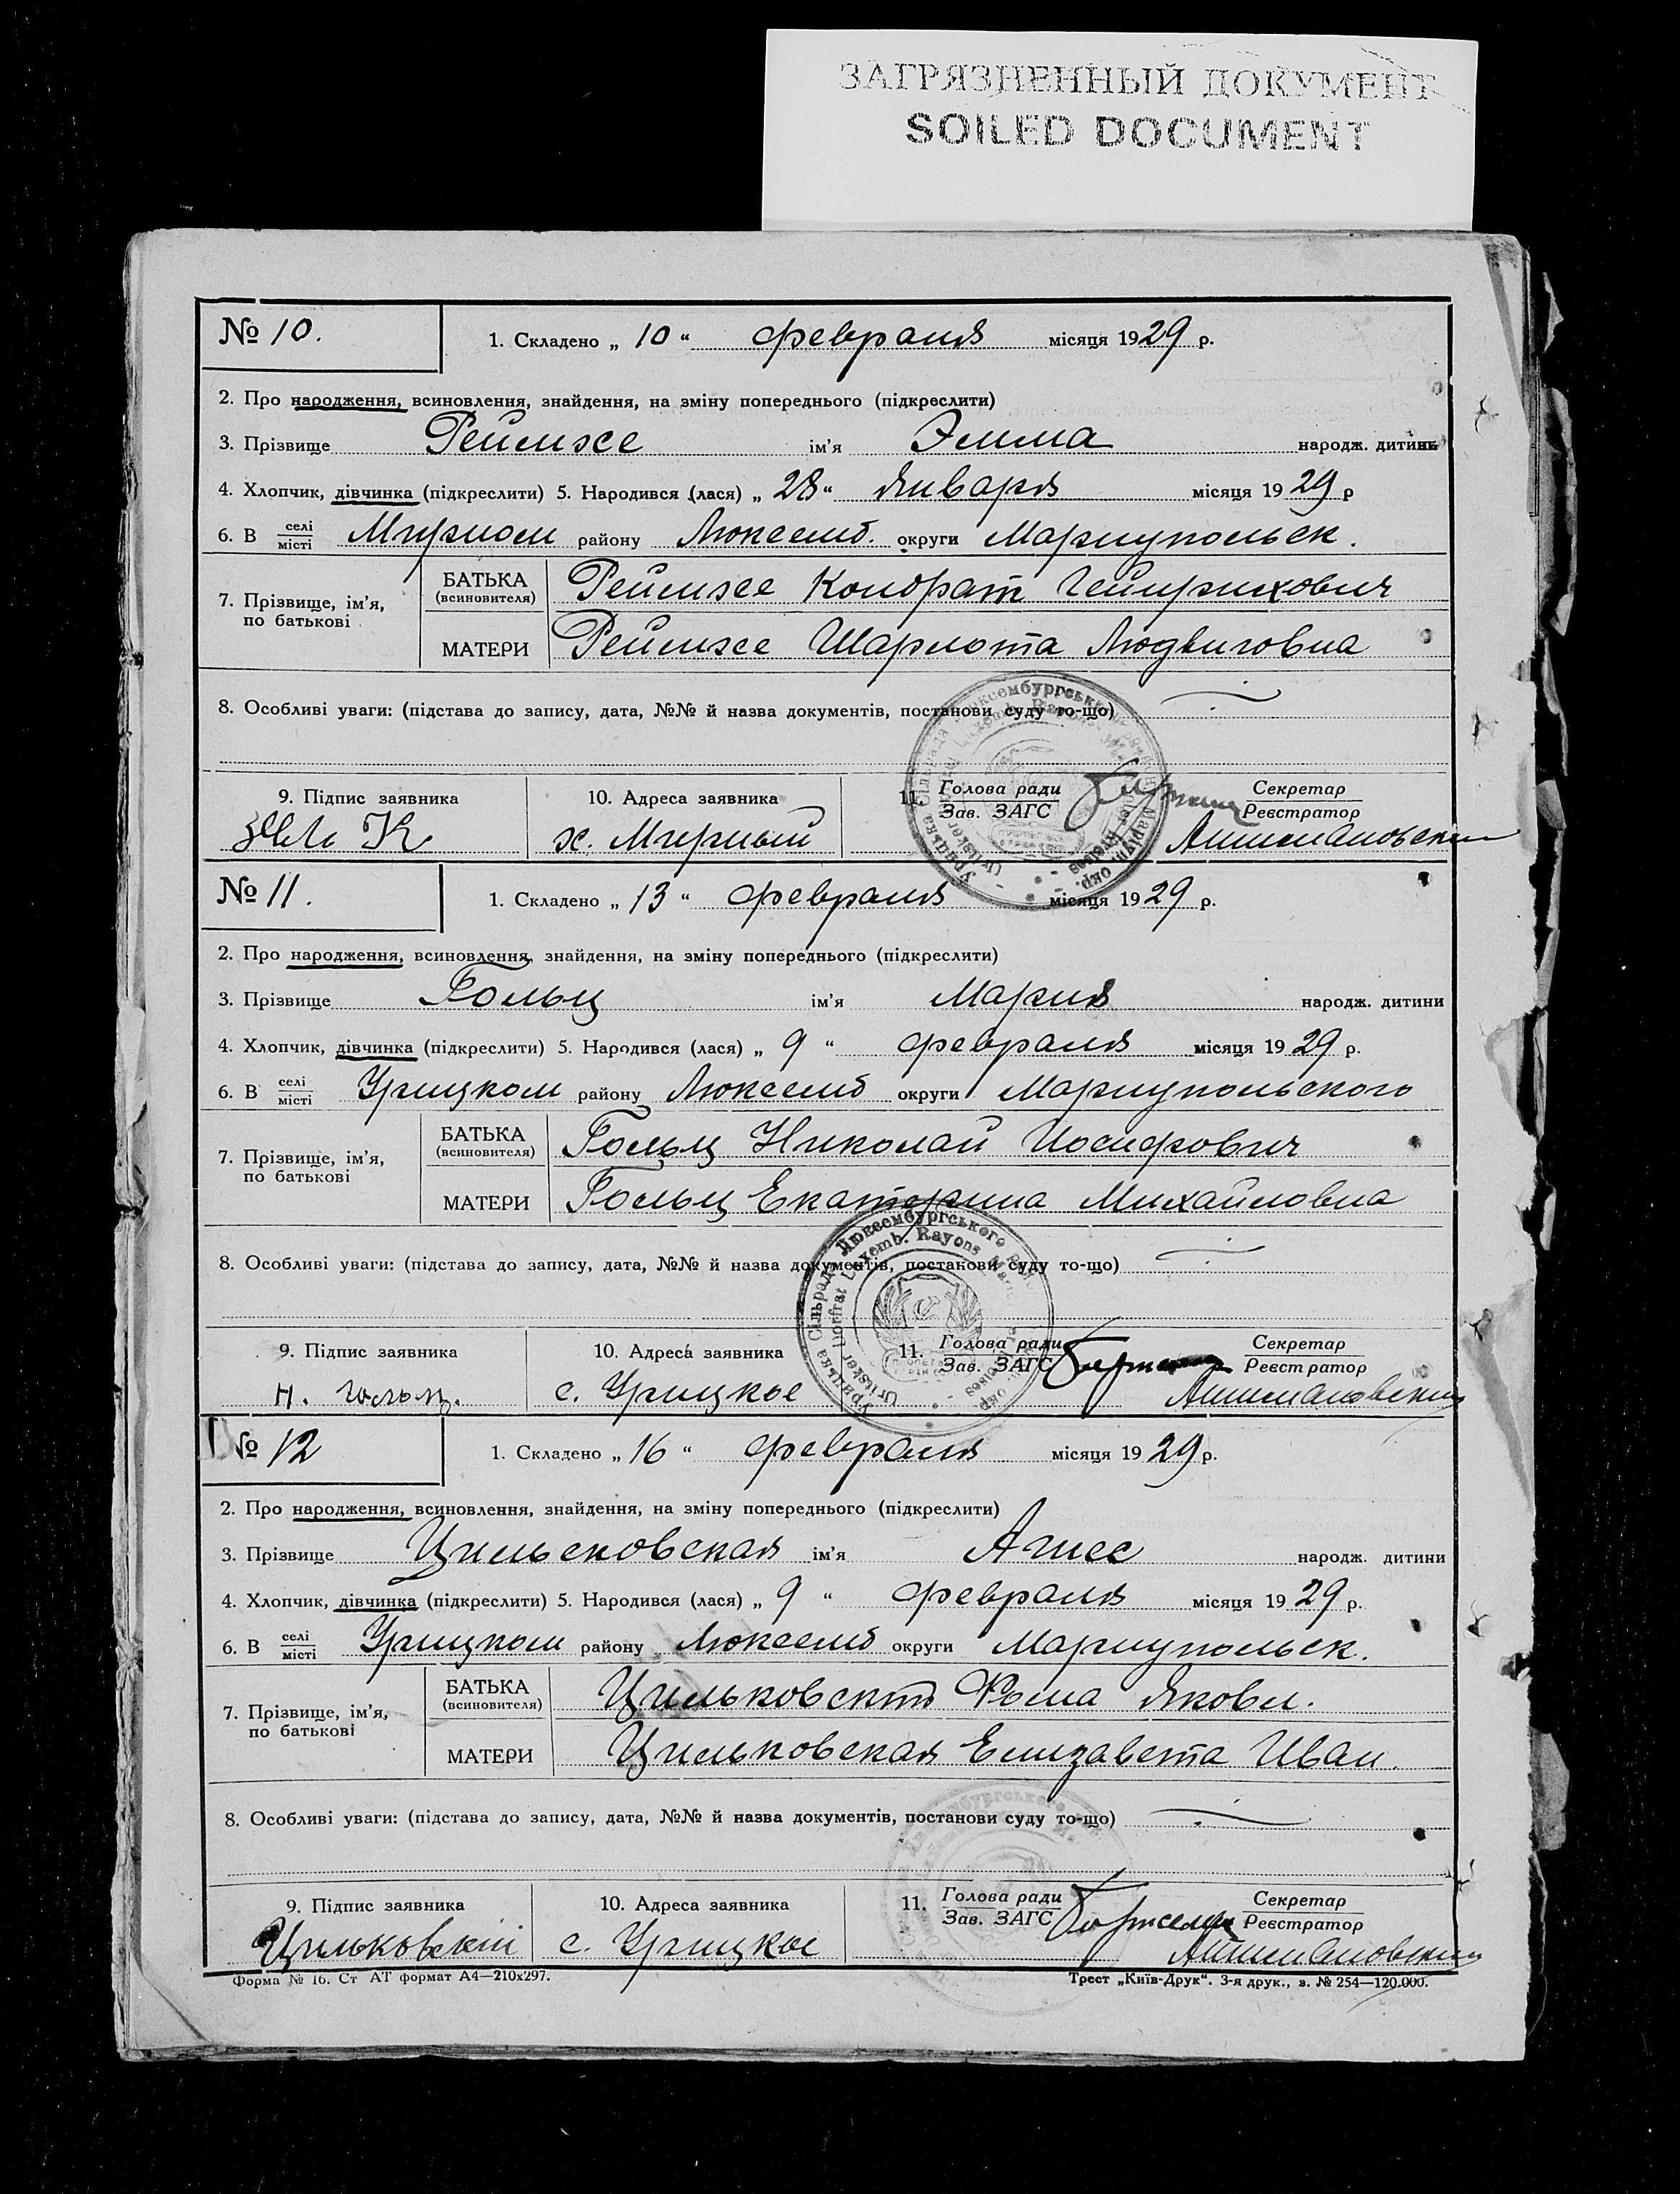 ЗАГРЯЗНЕННЫЙ ДОКУМЕНТ
SOILED DOCUMENT
№ 10. 1. Складено „ 10 “ февраля місяця 1929 р.
2. Про народження, всиновлення, знайдення, на зміну попереднього (підкреслити)
3. Прізвище Реймхе ім’я Эмма народж. дитини
4. Хлопчик, дівчинка (підкреслити) 5. Народився (лася) „ 28 “ января місяця 1929 р
6. В селі місті Мирном району Люксемб. округи Мариупольск.
7. Прізвище, ім’я, по батькові БАТЬКА (всиновителя) Реймхе Кондрат Гейнрихович
МАТЕРИ Реймхе Шарлота Людвиговна
8. Особливі уваги: (підстава до запису, дата, №№ й назва документів, постанови суду то-що)
9. Підпис заявника 10. Адреса заявника 11. Голова ради Зав. ЗАГС Секретар Реєстратор
х. Мирный
№ 11. 1. Складено „ 13 “ февраля місяця 1929 р.
2. Про народження, всиновлення, знайдення, на зміну попереднього (підкреслити)
3. Прізвище Гольц ім’я Мария народж. дитини
4. Хлопчик, дівчинка (підкреслити) 5. Народився (лася) „ 9 “ февраля місяця 1929 р.
6. В селі місті Урицком району Люксемб округи Мариупольского
7. Прізвище, ім’я, по батькові БАТЬКА (всиновителя) Гольц Николай Иосифович
МАТЕРИ Гольц Екатерина Михайловна
8. Особливі уваги: (підстава до запису, дата, №№ й назва документів, постанови суду то-що)
9. Підпис заявника 10. Адреса заявника 11. Голова ради Зав. ЗАГС Секретар Реєстратор
Н. Гольц. с. Урицкое
№ 12 1. Складено „ 16 “ февраля місяця 1929 р.
2. Про народження, всиновлення, знайдення, на зміну попереднього (підкреслити)
3. Прізвище Цильковская ім’я Агнес народж. дитини
4. Хлопчик, дівчинка (підкреслити) 5. Народився (лася) „ 9 “ февраля місяця 1929 р.
6. В селі місті Урицком району Люксемб округи Мариупольск.
7. Прізвище, ім’я, по батькові БАТЬКА (всиновителя) Цильковский Фома Яковл.
МАТЕРИ Цильковская Елизавета Иван.
8. Особливі уваги: (підстава до запису, дата, №№ й назва документів, постанови суду то-що)
9. Підпис заявника 10. Адреса заявника 11. Голова ради Зав. ЗАГС Секретар Реєстратор
Цильковскій с. Урицкое
Форма № 16. Ст АТ формат А4—210х297. Трест „Київ-Друк“. 3-я друк., з. № 254—120.000.